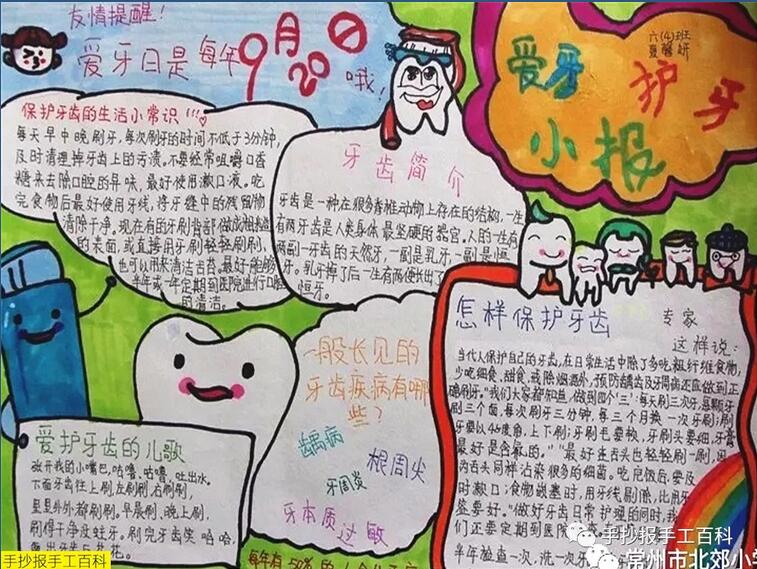 友情提醒！
爱牙日是每年9月20日哦！
六(4)班
爱牙护牙
小报
保护牙齿的生活小常识!!!
每天早中晚刷牙，每次刷牙的时间不低于3分钟，
及时清理掉牙齿上的污渍，不要经常咀嚼口香
糖来去除口腔的异味，最好使用漱口液。吃
完食物后最好使用牙线，将牙缝中的残留物
清除干净。现在有的牙刷背部做成粗糙
的表面，或直接用牙刷轻轻刷刷，
也可以用来清洁舌苔。最好能够
半年或一年定期到医院进行口腔
的清洁。
牙齿简介
牙齿是一种在很多脊椎动物上存在的结构，一生
有两牙齿是人类身体最坚硬的器官。人的一生有
两副牙齿的天然牙，一副是乳牙，一副是恒
牙。乳牙掉了后一生有两便长出了
恒牙。
怎样保护牙齿
专家
这样说：
当代人保护自己的牙齿，在日常生活中除了多吃粗纤维食物，
少吃细食、甜食，戒除烟酒外，预防龋齿及牙周病还应做到正
确刷牙。"我们大家都知道，做到四个'三'：每天刷三次牙，悬颗牙
刷三个面，每次刷牙三分钟，每三个月换一次牙刷；刷
牙要以45度角，上下刷；牙刷毛要软，牙刷头要细，牙膏
最好是含氟的。""最好连舌头也轻轻刷一刷，因
为舌头同样沾染很多的细菌。吃完饭后，要及
时漱口；食物嵌塞时，用牙线剔除，比用牙
签要好。"做好牙齿日常护理的同时，我
们还要定期到医院
半年检查一次，洗一次牙
一般长见的
牙齿疾病有哪
些？
龋齿病
牙周炎
根周炎
牙本质过敏
爱护牙齿的儿歌
张开我的小嘴巴，咕噜，咕噜，吐出水。
下面牙齿往上刷，左刷刷，右刷刷，
里里外外都刷刷，早晨刷，晚上刷，
刷得干净没蛀牙。刷完牙齿笑哈哈，
露出牙齿白花花。
手抄报手工百科
手抄报手工百科
常州市北郊小学